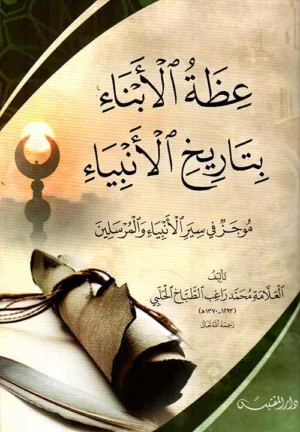 عِظَةُ الْأَبْنَاءِ
بِتَارِيخِ الْأَنْبِيَاءِ
مُوجَزٌ فِي سِيَرِ الْأَنْبِيَاءِ وَالْمُرْسَلِينَ
تَأْلِيفُ
الْعَلَّامَةِ مُحَمَّد رَاغِب الطَّبَّاخ الْحَلَبِي
(١٢٩٣-١٣٧٠هـ)
رَحِمَهُ اللهُ تَعَالَى
دار المقتبس